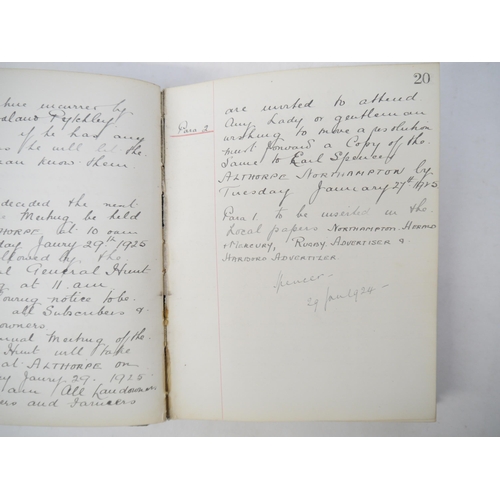 incurred by
Pytchley
if he has any
he will let the
know them
decided the next
Meeting be held
at 10 am
Jaury 29th 1925
followed by the
General Hunt
at 11 a.m.
notice to be
all Subscribers &
owners
Meeting of the
Hunt will take
at ALTHORPE on
Jaury 29. 1925
am (All Landowners
and Farmers
20
Para 2
are invited to attend
Any Lady or gentleman
wishing to move a resolution
must forward a Copy of the
Same to Earl Spencer
ALTHORPE NORTHAMPTON by
Tuesday January 27th 1925
Para 1. to be inserted in the
Local papers NORTHAMPTON HERALD
& MERCURY, RUGBY ADVERTISER &
HARBORO ADVERTIZER
Spencer
29 Jan. 1924.